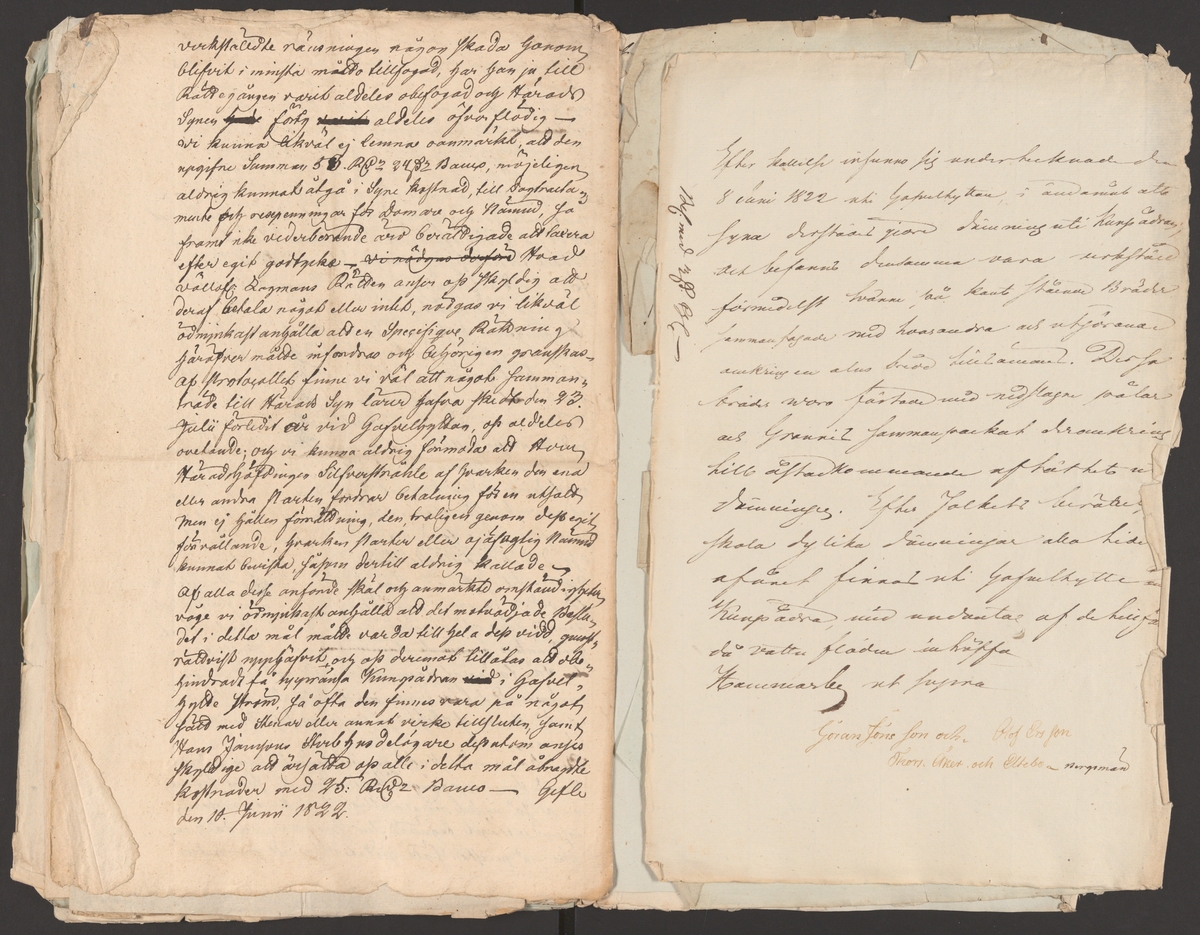 verkstälde räusningen någon skada honom
blifvit i minsta måtto tillfogad, har han ju till
Rättegången varit aldeles obefogad och Härads
Synen förty aldeles öfverflödig —
vi kunna likväl ej lemna oanmärkt, att den
upgifne Summan 53 Rd 24 s Banco, möjeligen
aldrig kunnat åtgå i Syne kostnad, till Dagtracta-
mente och resepenningar för Domare och Nämnd, så
framt icke vederbörande ärd berättigade att taxera
efter eget godtycke — vi nödgas derföre Hvad
välloft Lagmans Rätten anser oss skyldig att
deraf betala något eller intet, nödgas vi likväl
ödmjukast anhålla att en Specifique Räkning
häröfver måtte infordras och behörigen granskas-
af Protocollet finne vi väl att något samman-
träde till Härads Syn lärer hafva skedt den 23.
Julii förledit år vid Gafvelhyttan, oss aldeles
ovetande; och vi kunna aldrig förmoda att Herr
Häradshöfdingen Silfverstråhle af hvarken den ena
eller andra Parten fordrar betalning för en utsatt
men ej hållen förrättning, den, troligen genom dess egit
förvållande, hvarken Parter eller ojäfagtig Nämnd
kunnat bevista, såsom dertill aldrig kallade
Af alla desse anförde skäl och anmärkte omständigheter
våge vi ödmjukast anhålla att det motvädjade Beslu-
det i detta mål måtte varda till hela dess vidd, grund-
rättvist upphäfvit och oss deremot tillåtas att obe-
hindradt få upprensa Kungsådran i Gafvel-
hytte Ström, så ofta den finnes vara på något
sätt med Stenar eller annat virke tillsluten, samt
Hans Jansons Sterbhusdelägare dessutom anses
skyldige att ersätta oss alle i detta mål åbragte
kostnader med 25: Rd Banco — Gefle
den 10 Junii 1822.
Efter kallelse infunno sig undertecknade den
8 Juni 1822 uti Gafvelhyttan, i ändamål att
syna derstädes gjord dämning uti Kungsådran,
och befanns densamma vara verkställd
förmedelst tvänne på kant stående Bräder
sammanfogade med hvarandra och utgörande
omkring en alns bredd tillsammans. Dessa
bräder woro fästade med nedslagne pålar
och Granris sammanpackat deromkring
till åstadkommande af täthet i
dämningen. Efter Folkets berättel
skola dylika dämningar alla tider
af året finnas uti Gafvelhytte
Kungsådra med undantag af de tillfä
då vatten flöden inträffa
Hammarby ut supra
Göran Jöns son och Olof Ers son
Thors Åker och Elsebo — nergsmän